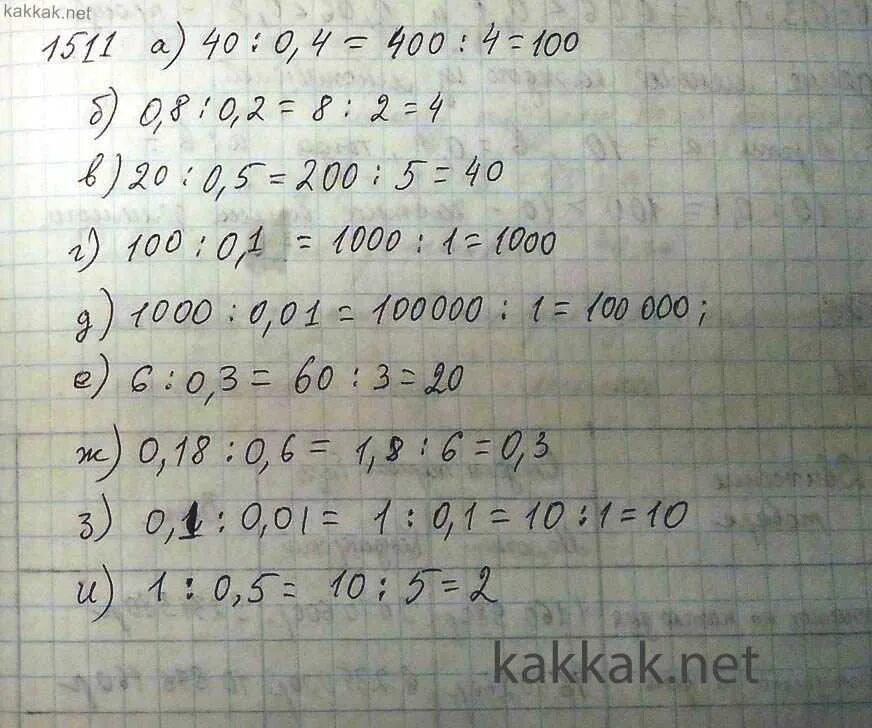 kakkak.net
1511 а) 40 : 0,4 = 400 : 4 = 100
б) 0,8 : 0,2 = 8 : 2 = 4
в) 20 : 0,5 = 200 : 5 = 40
г) 100 : 0,1 = 1000 : 1 = 1000
д) 1000 : 0,01 = 100000 : 1 = 100 000;
е) 6 : 0,3 = 60 : 3 = 20
ж) 0,18 : 0,6 = 1,8 : 6 = 0,3
з) 0,1 : 0,01 = 1 : 0,1 = 10 : 1 = 10
и) 1 : 0,5 = 10 : 5 = 2
kakkak.net